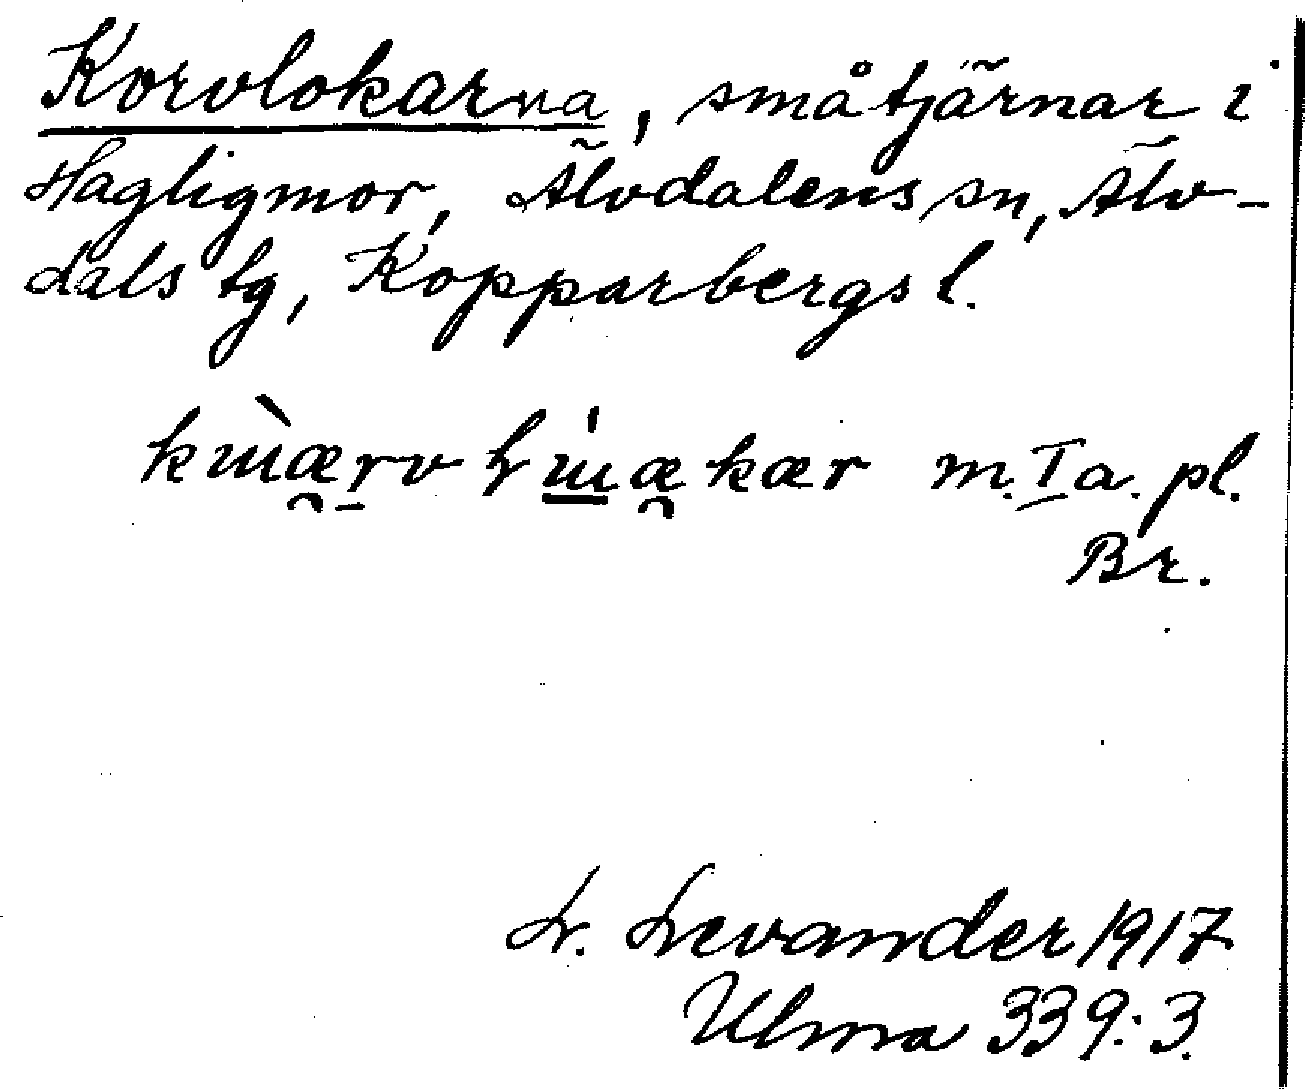 Korvlokarna, småtjärnar i
Hagligmor, Älvdalens sn, Älv-
dals tg, Kopparbergs l.
m. I a. pl.
Br.
L. Levander 1917
Ulma 339:3.